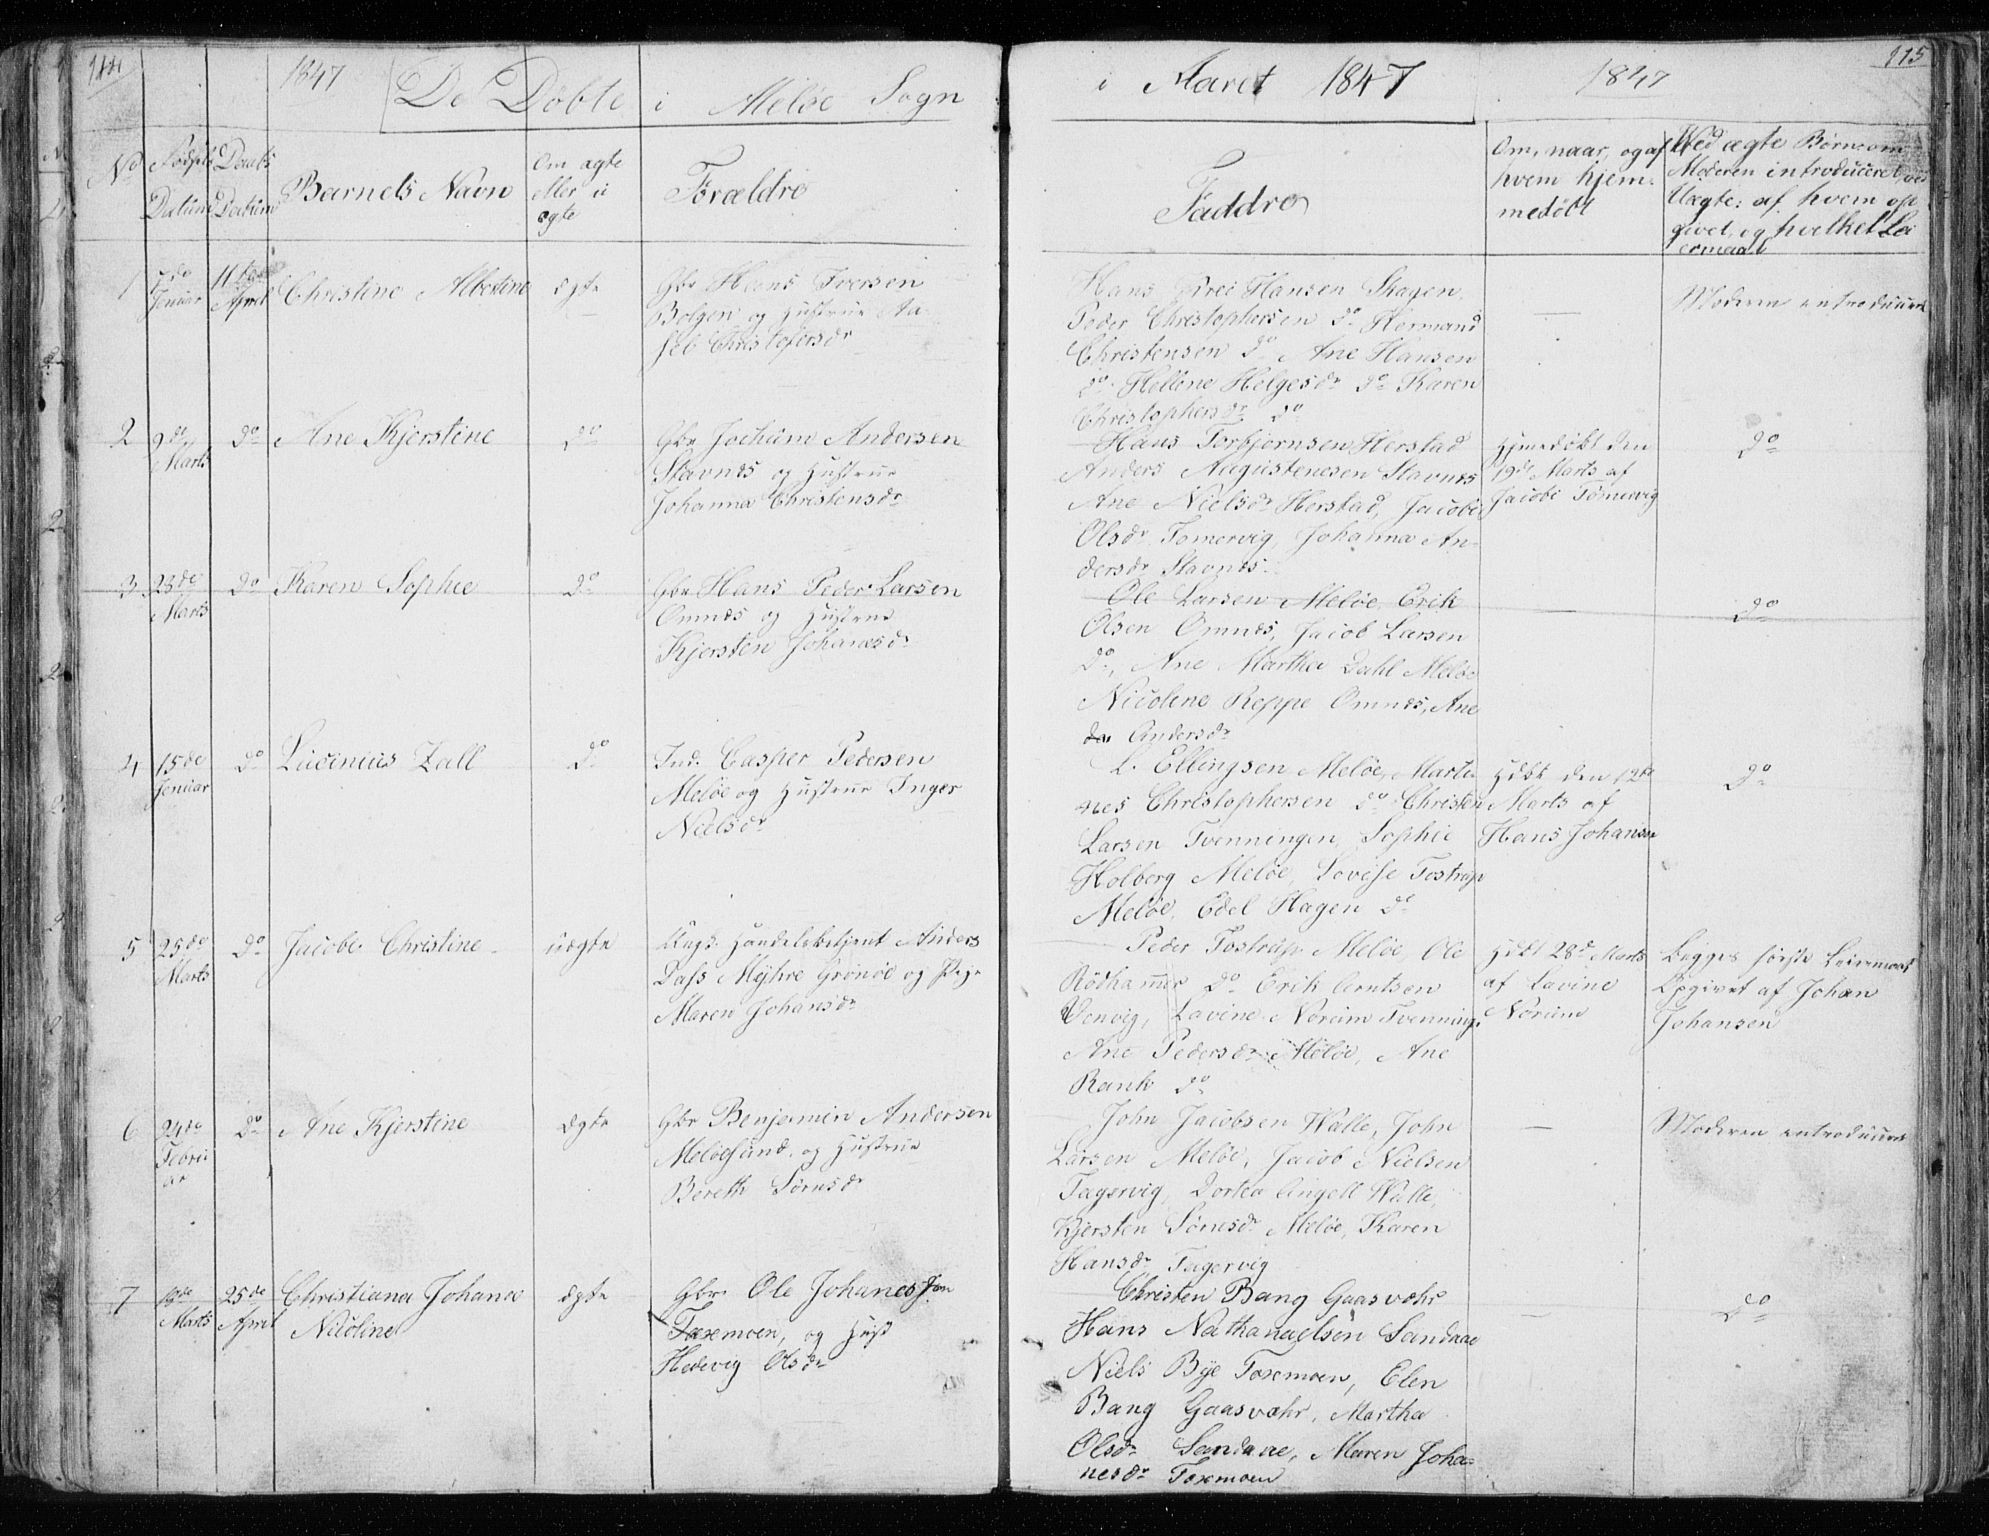 114
1847
De Döbte i Meløe Sogn
No
Födsels Datum
Daabs Datum
Barnets Navn
Om ægte
eller u
ægte
Forældre
1
7de
Januar
11te
April
Christine Albertine
ægte
Gbr Hans Iversen
Bolgen og Hustrue
Christofersdr
2
9de
Marts
do
Ane Kjerstine
do
Gbr Jochum Andersen
Stavnes og Hustrue
Johanna Christensdr
3
23de
Marts
do
Karen Sophie
do
Gbr Hans Peder Larsen
Omnes og Hustrue
Kjersten Johanesdr
4
15de
Januar
do
Lucinius Zall
do
Ind. Casper Pedersen
Meløe og Hustrue Inger
Nielsdr
5
25de
Marts
do
Jacobe Christine
uægte
Ungk. Handelsbetjent Anders
Dass Mejhre Grönöe og Pige
Maren Johansdr
6
24de
Febru
ar
do
Ane Kjerstine
ægte
Gbr Benjamin Andersen
Meløesund, og Hustrue
Bereth Sörnsdr
7
19de
Marts
25de
April
Christiana Johana
Nicoline
ægte
Gbr. Ole Johanessen
Foremoen, og Hust
Hedevig Olsdr
115
i Aaret 1847
1847
Faddre
Om, naar, og af
hvem hjem-
medöbt
Ved ægte Börn om
Moderen introduceret, ved
Uægte: af hvem op
givet, og hvilket Lei
ermaal
Hans Hansen Skagen
Peder Christophersen do Hermand
Christensen do Ane Hansen
do Hellene Helgesdr do Karen
Christophersdr do
—
Moderen introduceret
Hans Torbjörnsen Herstad
Anders Augustenesen Stavnes
Ane Nielsdr Herstad, Jacobe
Olsdr Tömervig, Johanna An-
dersdr Stavnes
Hjmedöbt den
19de Marts af
Jacobe Tömervig
do
Ole Larsen Meløe Erik
Olsen Omnes, Jacob Larsen
do, Ane Martha Dahl Meløe
Nicoline Reppe Omnes, Ane
Andersdr
—
do
L. Ellingsen Meløe, Marti-
nes Christophersen do Christen
Larsen Tvenningen, Sophie
Holberg Meløe, Lovise Tostrup
Meløe, Edel Hagen do
Hdöbt den 12te
Marts af
Hans Johansen
do
Peder Tostrup Meløe, Ole
Rödhamer do Erik Arntsen
Venvig, Lavine Norum Tvenning.
Ane Pedersdr Meløe, Ane
Rank do
Hdbt 28de Marts
af Lavine
Norum
Begges förste Leiermaal
Opgivet af Johan
Johansen
John Jacobsen Walle, John
Larsen Meløe, Jacob Nielsen
Fagervig, Dortea Angell Walle,
Kjersten Sörnsdr Meløe, Karen
Hansdr Fagervig
—
Moderen introduceret
Christen Bang Gaasvæhr
Hans Nathanaelsön Sandaae
Niels Bye Foremoen, Elen
Bang Gaasvæhr, Martha
Olsdr Sandaae, Maren Joha-
nesdr Foremoen
—
do